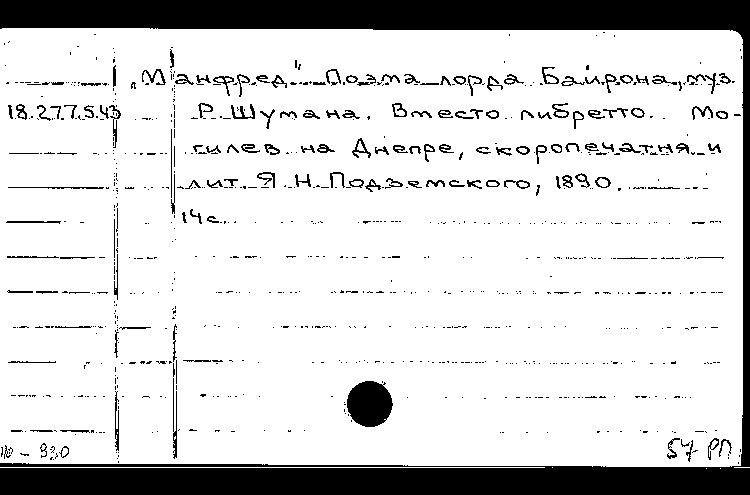 „Манфред" Поэма лорда Байрона, муз.
18.277.5.43 Р. Шумана. Вместо либретто. Мо-
гилев на Днепре, скоропечатня и
лит. Я. Н. Подземского, 1890.
14 с.
– 930
57 РП